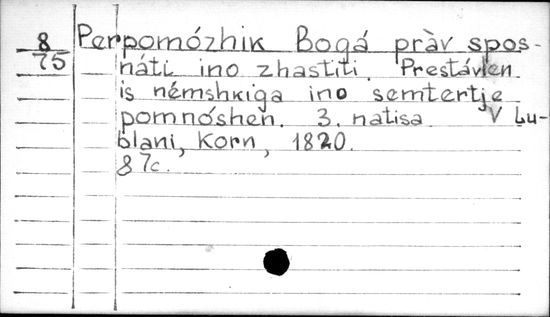 8 Perpomózhik Bogá pràv spos-
75 náti ino zhastiti. Prestávlen
is némshkiga ino semtertje
pomnóshen. 3. natisa V Lu-
blani, Korn, 1820.
8 7c.